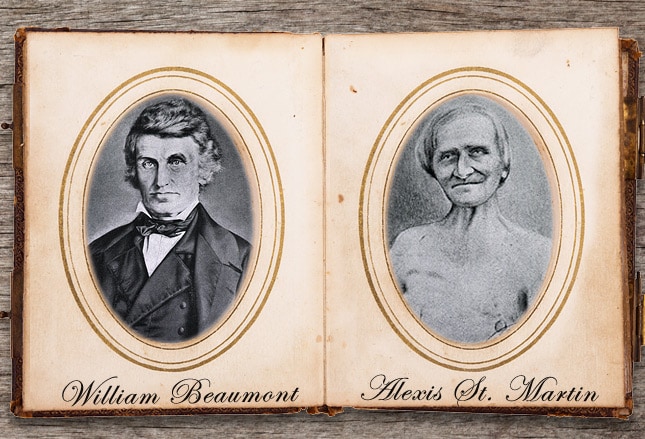 William Beaumont
Alexis St. Martin